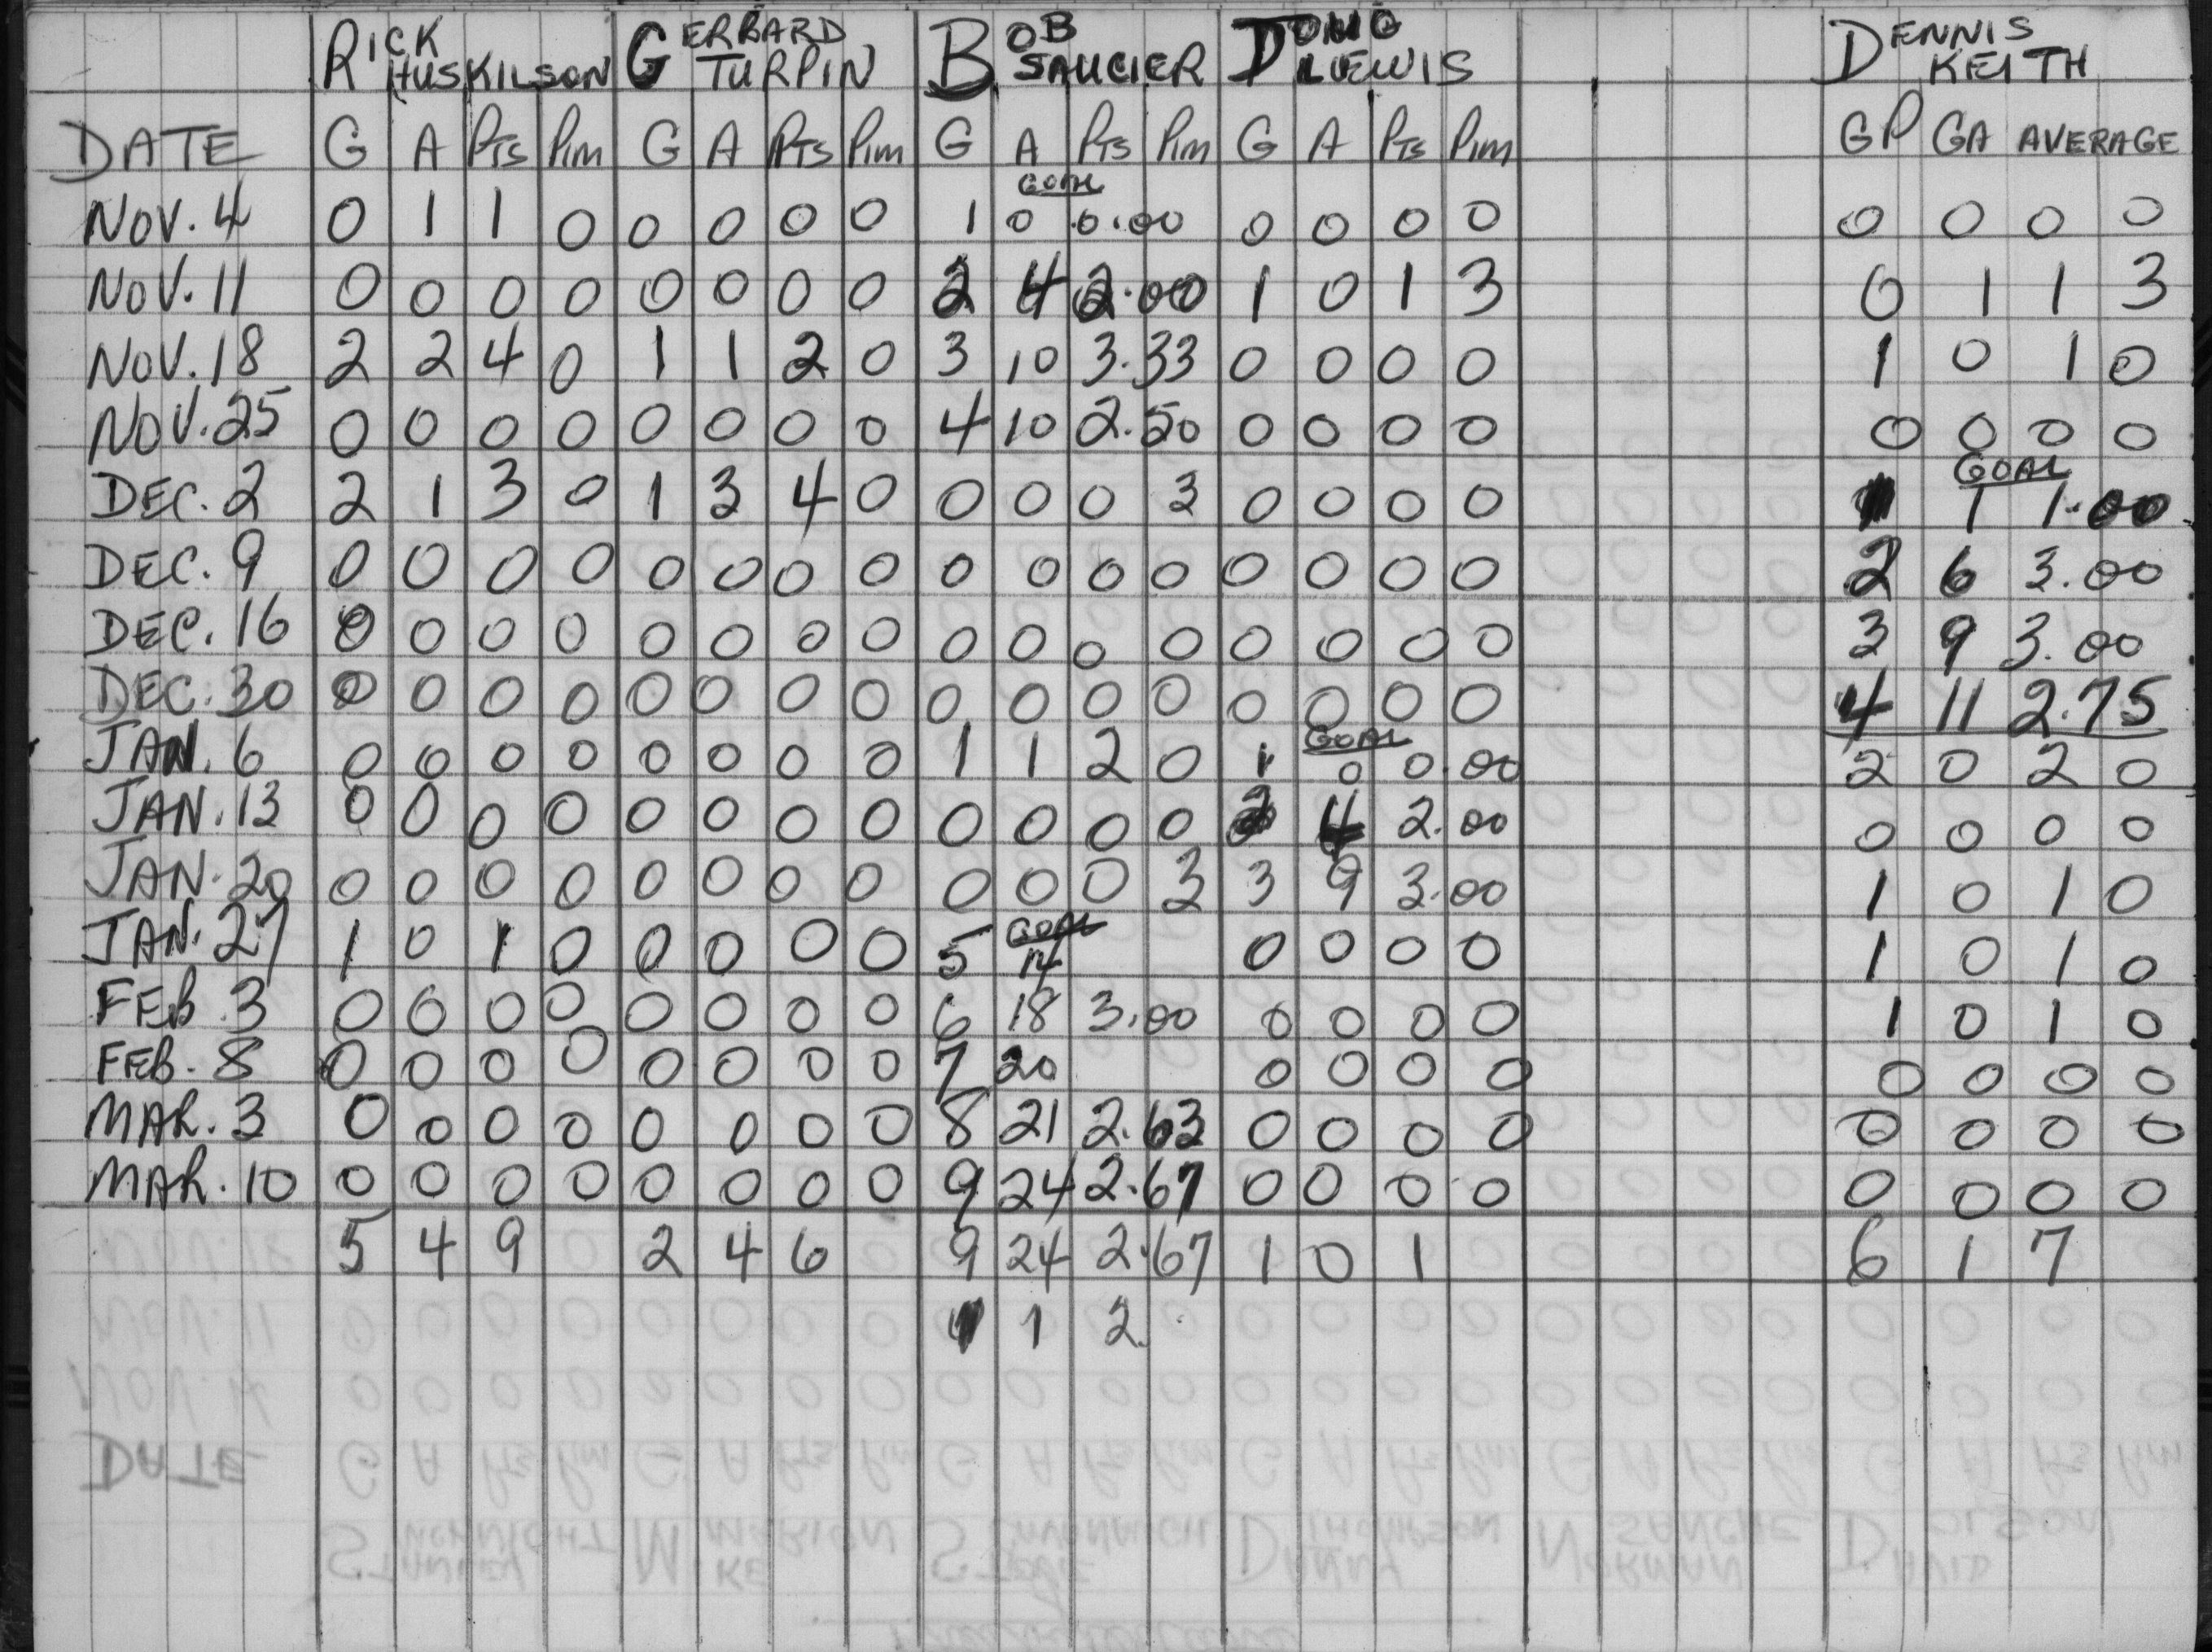 RICK HUSKILSON GERRARD TURPIN BOB SAUCIER DOUG LUEWIS DENNIS KEITH
DATE G A PTS PIM G A PTS PIM G A PTS PIM G A PTS PIM GP GA AVERAGE
GOAL
NOV. 4 0 1 1 0 0 0 0 0 1 0 0.00 0 0 0 0 0 0 0 0
NOV. 11 0 0 0 0 0 0 0 0 2 4 2.00 1 0 1 3 0 1 1 3
NOV. 18 2 2 4 0 1 1 2 0 3 10 3.33 0 0 0 0 1 0 1 0
NOV. 25 0 0 0 0 0 0 0 0 4 10 2.50 0 0 0 0 0 0 0 0
GOAL
DEC. 2 2 1 3 0 1 3 4 0 0 0 0 3 0 0 0 0 1 1 1.00
DEC. 9 0 0 0 0 0 0 0 0 0 0 0 0 0 0 0 0 2 6 3.00
DEC. 16 0 0 0 0 0 0 0 0 0 0 0 0 0 0 0 0 3 9 3.00
DEC. 30 0 0 0 0 0 0 0 0 0 0 0 0 0 0 0 0 4 11 2.75
GOAL
JAN. 6 0 0 0 0 0 0 0 0 1 1 2 0 1 0 0.00 2 0 2 0
JAN. 13 0 0 0 0 0 0 0 0 0 0 0 0 2 4 2.00 0 0 0 0
JAN. 20 0 0 0 0 0 0 0 0 0 0 0 3 3 9 3.00 1 0 1 0
GOAL
JAN. 27 1 0 1 0 0 0 0 0 5 14 0 0 0 0 1 0 1 0
FEB. 3 0 0 0 0 0 0 0 0 6 18 3.00 0 0 0 0 1 0 1 0
FEB. 8 0 0 0 0 0 0 0 0 7 20 0 0 0 0 0 0 0 0
MAR. 3 0 0 0 0 0 0 0 0 8 21 2.63 0 0 0 0 0 0 0 0
MAR. 10 0 0 0 0 0 0 0 0 9 24 2.67 0 0 0 0 0 0 0 0
5 4 9 2 4 6 9 24 2.67 1 0 1 6 1 7
1 1 2